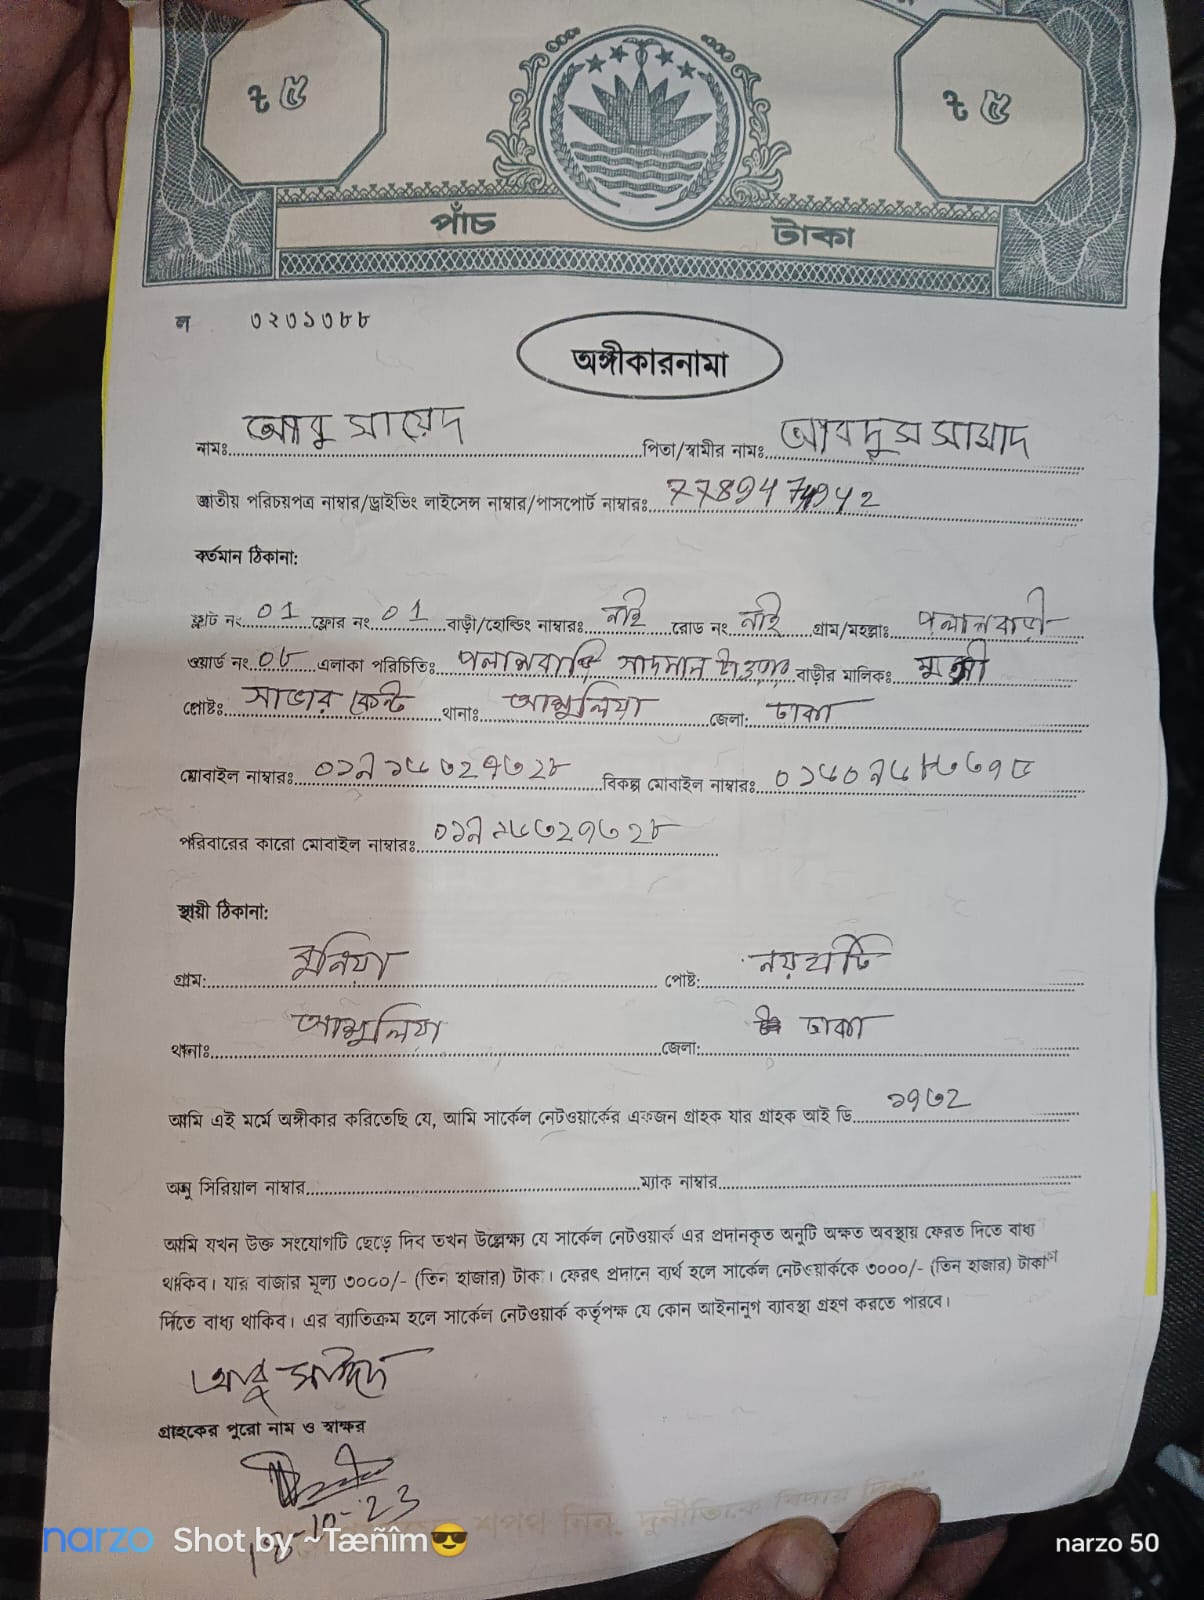 ৳ ৫ ৳ ৫
পাঁচ টাকা
ল ৩২৩১৩৮৮
অঙ্গীকারনামা
নামঃ আবু সায়েদ পিতা/স্বামীর নামঃ আবদুস সামাদ
জাতীয় পরিচয়পত্র নাম্বার/ড্রাইভিং লাইসেন্স নাম্বার/পাসপোর্ট নাম্বারঃ
বর্তমান ঠিকানা:
ফ্লাট নং 01 ফ্লোর নং 01 বাড়ী/হোল্ডিং নাম্বারঃ নাই রোড নং নাই গ্রাম/মহল্লাঃ পলাশবাড়ী
ওয়ার্ড নং ০৮ এলাকা পরিচিতিঃ পলাশবাড়ি টাওয়ার বাড়ীর মালিকঃ
পোষ্টঃ সাভার কেন্ট থানাঃ আশুলিয়া জেলা: ঢাকা
মোবাইল নাম্বারঃ বিকল্প মোবাইল নাম্বারঃ
পরিবারের কারো মোবাইল নাম্বারঃ
স্থায়ী ঠিকানা:
গ্রাম: পোষ্ট: নয়হাটি
থানাঃ আশুলিয়া জেলা: ঢাকা
আমি এই মর্মে অঙ্গীকার করিতেছি যে, আমি সার্কেল নেটওয়ার্কের একজন গ্রাহক যার গ্রাহক আই ডি ১৭৩২
অনু সিরিয়াল নাম্বার ম্যাক নাম্বার
আমি যখন উক্ত সংযোগটি ছেড়ে দিব তখন উল্লেক্ষ্য যে সার্কেল নেটওয়ার্ক এর প্রদানকৃত অনুটি অক্ষত অবস্থায় ফেরত দিতে বাধ্য
থাকিব। যার বাজার মূল্য ৩০০০/- (তিন হাজার) টাকা। ফেরৎ প্রদানে ব্যর্থ হলে সার্কেল নেটওয়ার্ককে ৩০০০/- (তিন হাজার) টাকা
দিতে বাধ্য থাকিব। এর ব্যাতিক্রম হলে সার্কেল নেটওয়ার্ক কর্তৃপক্ষ যে কোন আইনানুগ ব্যাবস্থা গ্রহণ করতে পারবে।
আবু সাঈদ
গ্রাহকের পুরো নাম ও স্বাক্ষর
শপথ নিন, দুর্নীতিকে বিদায় দিন
narzo Shot by ~Tæñîm😎 narzo 50